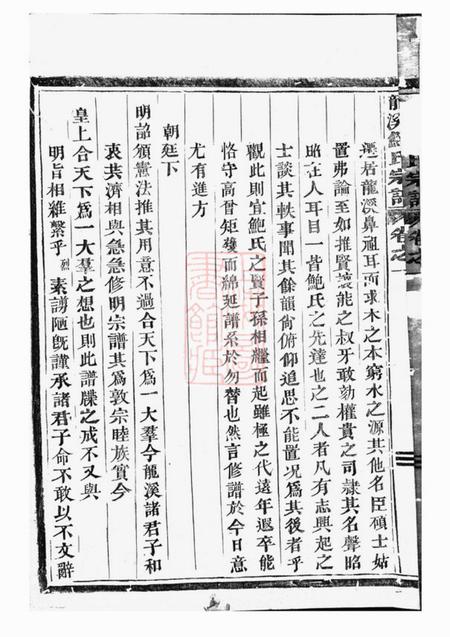 龍溪鮑氏宗譜 卷之一
遷居龍溪鼻祖耳而求木之本窮水之源其他名臣碩士姑
置弗論至如推賢讓能之叔牙敢劾權貴之司隸其名聲昭
昭在人耳目一皆鮑氏之先達也之二人者凡有志興起之
士談其軼事聞其餘韻尙俯仰追思不能置况爲其後者乎
觀此則宜鮑氏之賢子孫相繼而起雖極之代遠年遐卒能
恪守高曾矩矱而綿延譜系於勿替也然言修譜於今日意
尤有進方
朝廷下
明詔頒憲法推其用意不過合天下爲一大羣今龍溪諸君子和
衷共濟相與急急修明宗譜其爲敦宗睦族實今
皇上合天下爲一大羣之想也則此譜牒之成不又與
明旨相維繫乎烈素謭陋旣謹承諸君子命不敢以不文辭